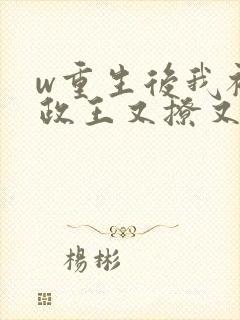 w重生後我
政王又撩又
楊彬